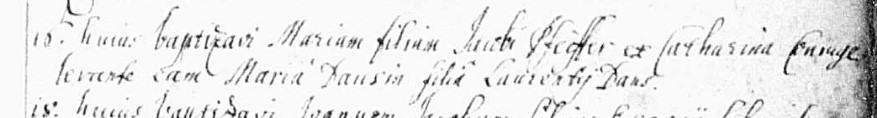 15. huius baptizavi Mariam filiam Jacobi Pfeiffer et Catharina Coniuge
levante eam Maria Dausin filia Laurentij Daus.
is. huius baptizavi Joannem